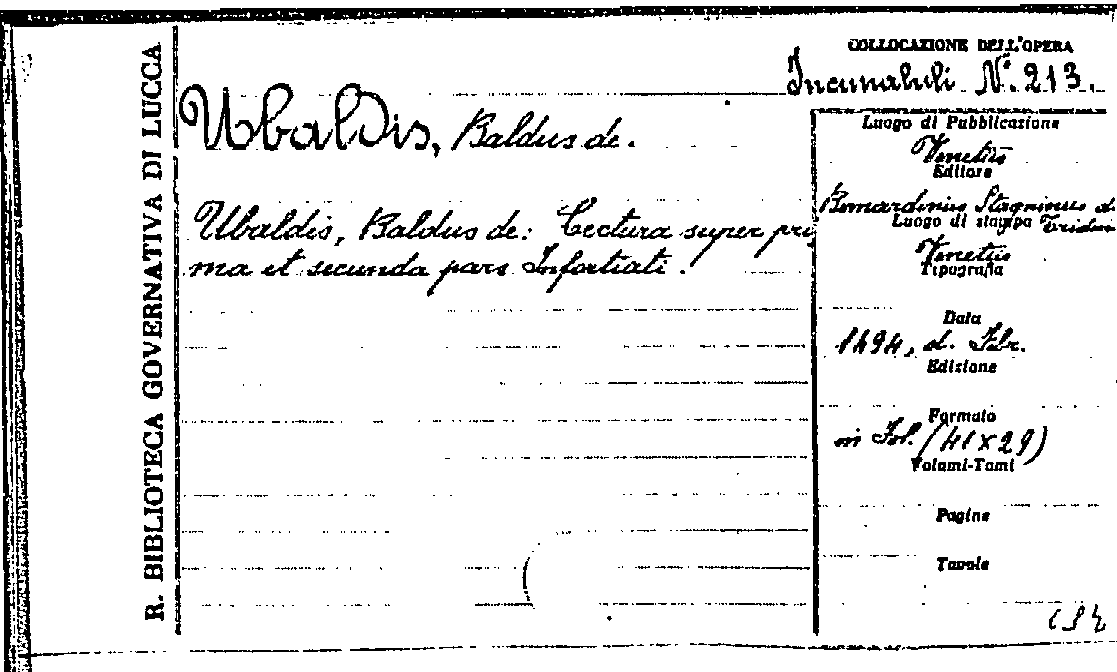 R. BIBLIOTECA GOVERNATIVA DI LUCCA
COLLOCAZIONE DELL'OPERA
Incunabuli N.° 213.
Ubaldis, Baldus de.
Ubaldis, Baldus de: Lectura super pri
ma et secunda pars Infortiati.
Luogo di Pubblicazione
Venetiis
Editore
Bernardinus Stagninus de
Luogo di stampa
Tridino
Venetiis
Tipografia
Data
1494, d. Febr.
Edizione
Formato
in Fol. (41×29)
Volumi-Tomi
Pagine
Tavole